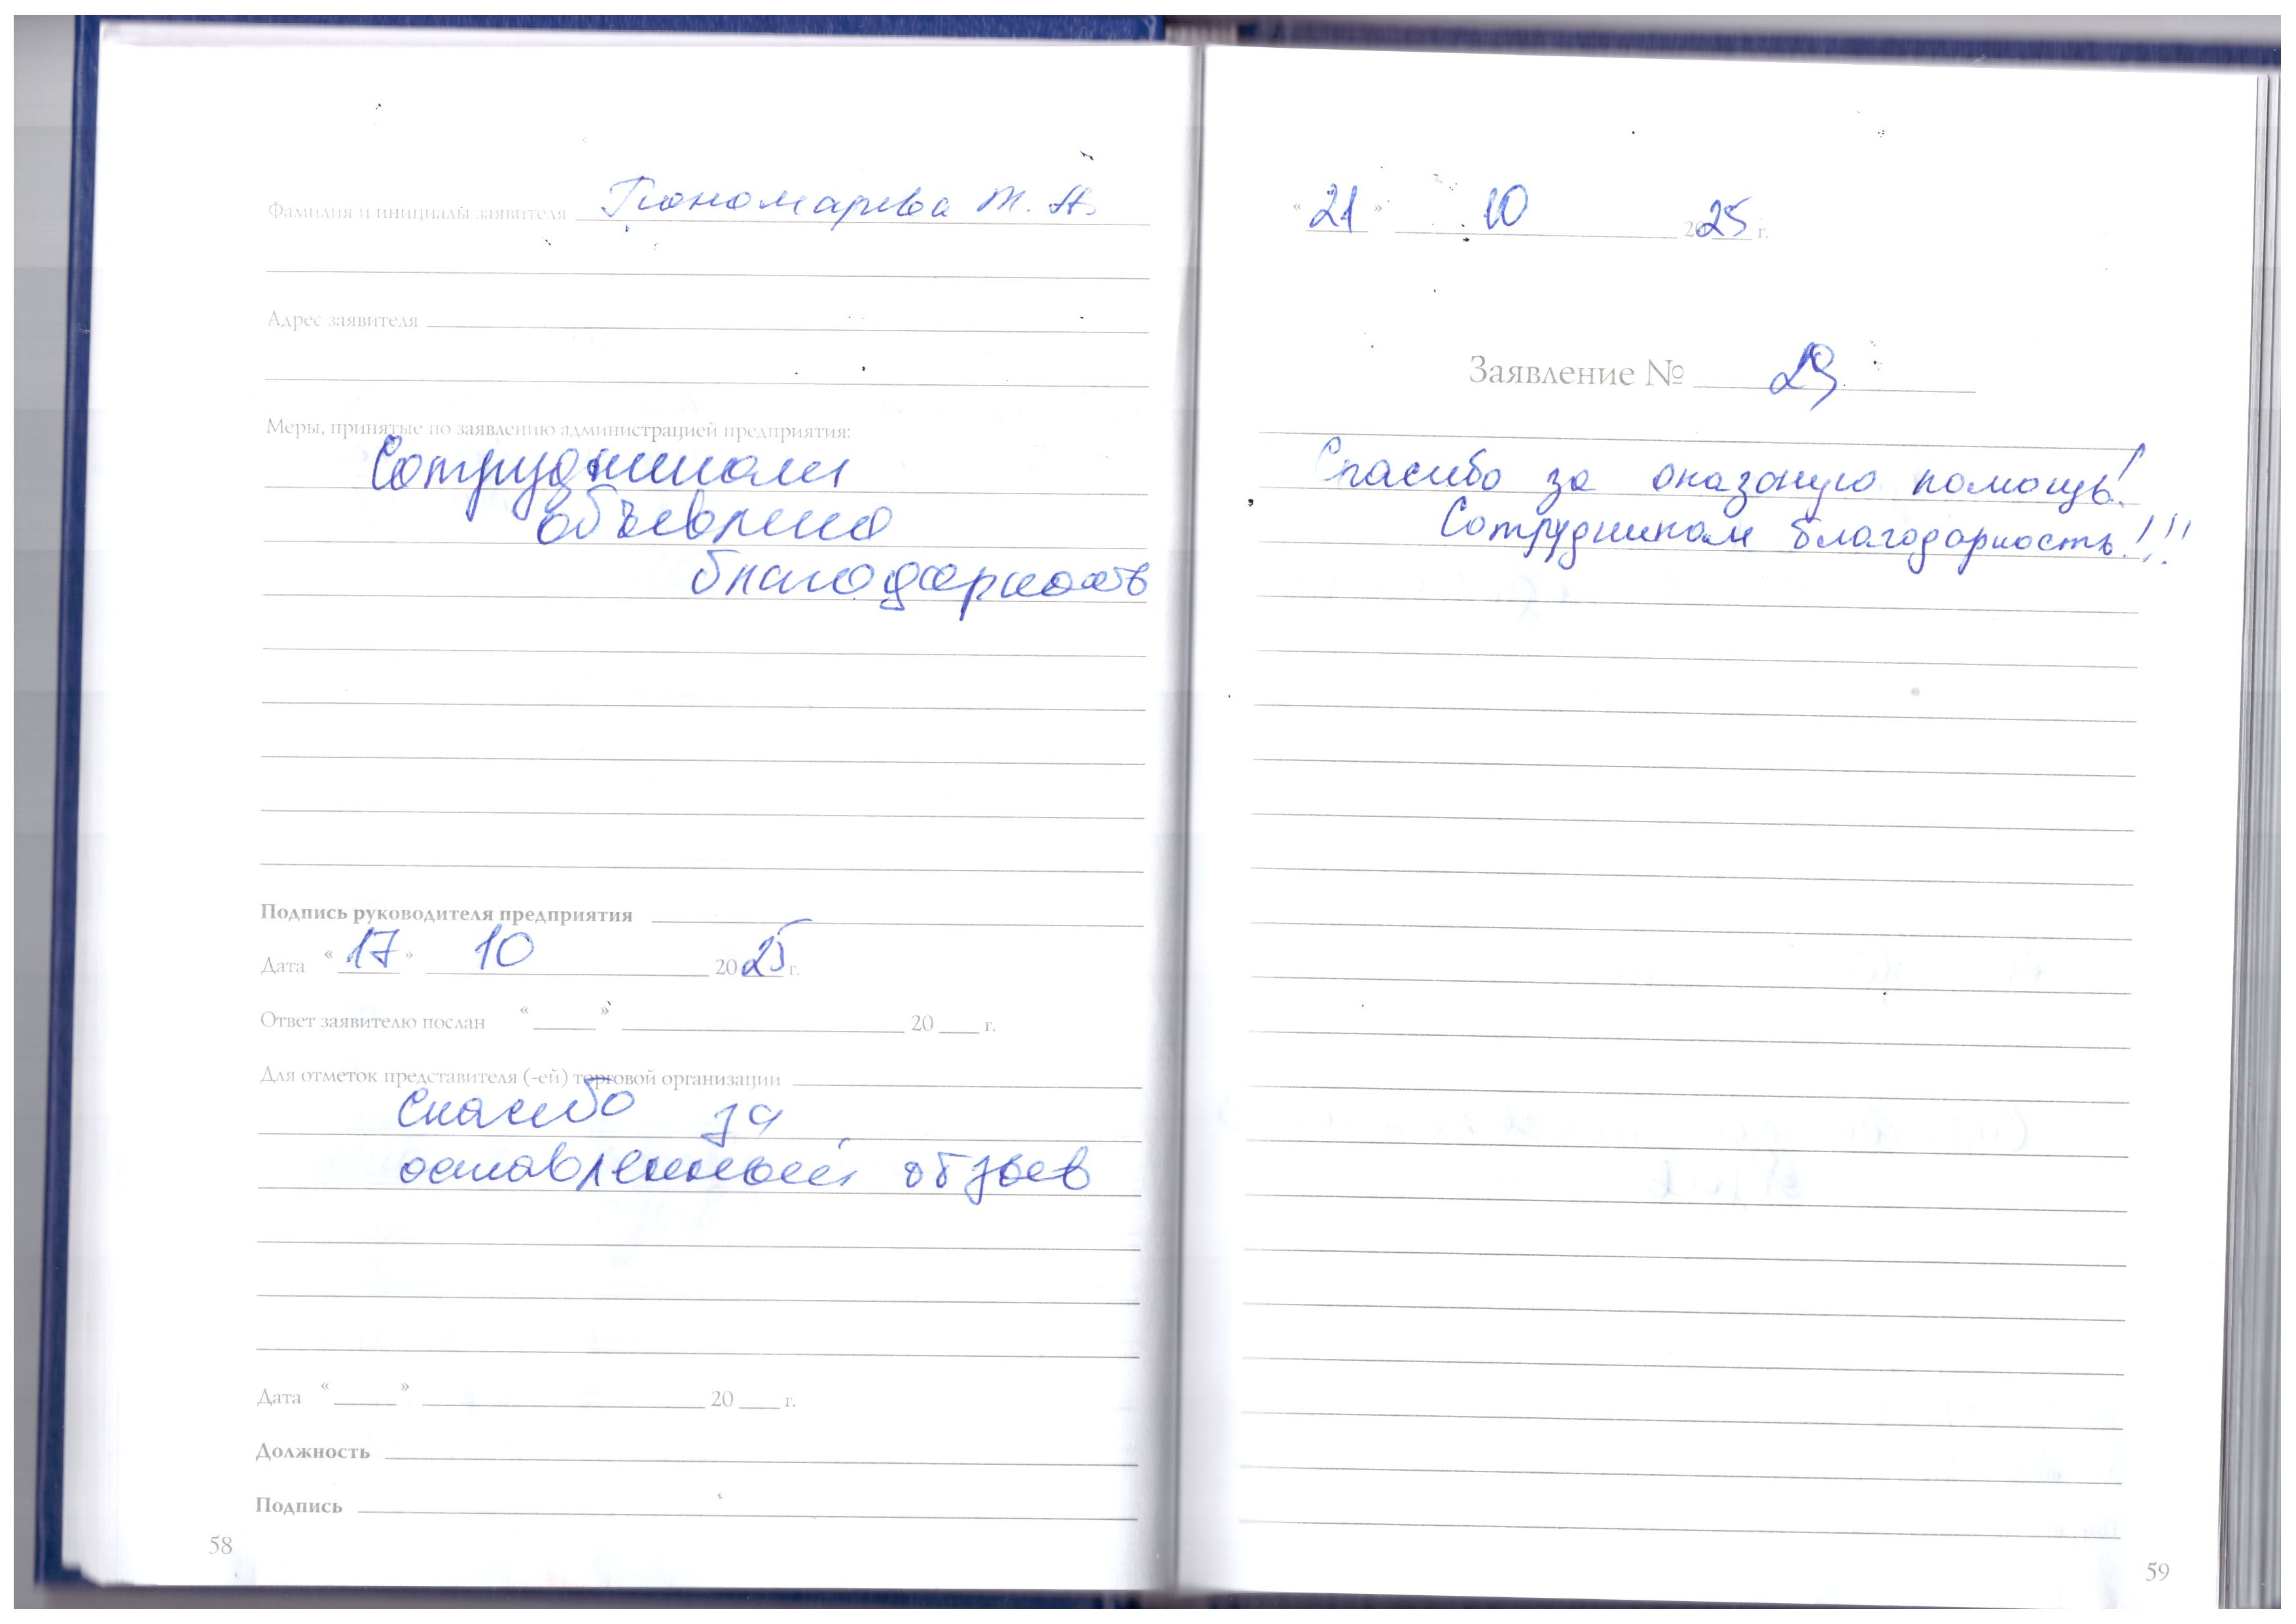 Фамилия и инициалы заявителя Пономарева Т. Н.
Адрес заявителя
Меры, принятые по заявлению администрацией предприятия:
Сотрудникам
объявлена
благодарность
Подпись руководителя предприятия
Дата « 17 » 10 2025 г.
Ответ заявителю послан « » 20 г.
Для отметок представителя (-ей) торговой организации
Спасибо за
оставленный отзыв
Дата « » 20 г.
Должность
Подпись
58
« 21 » 10 2025 г.
Заявление № 29
Спасибо за оказаную помощь!
Сотрудникам благодарность!!!
59